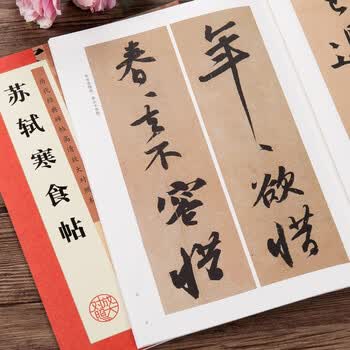 年、欲惜
春、去不容惜
苏轼寒食帖
历代经典碑帖高清放大对照